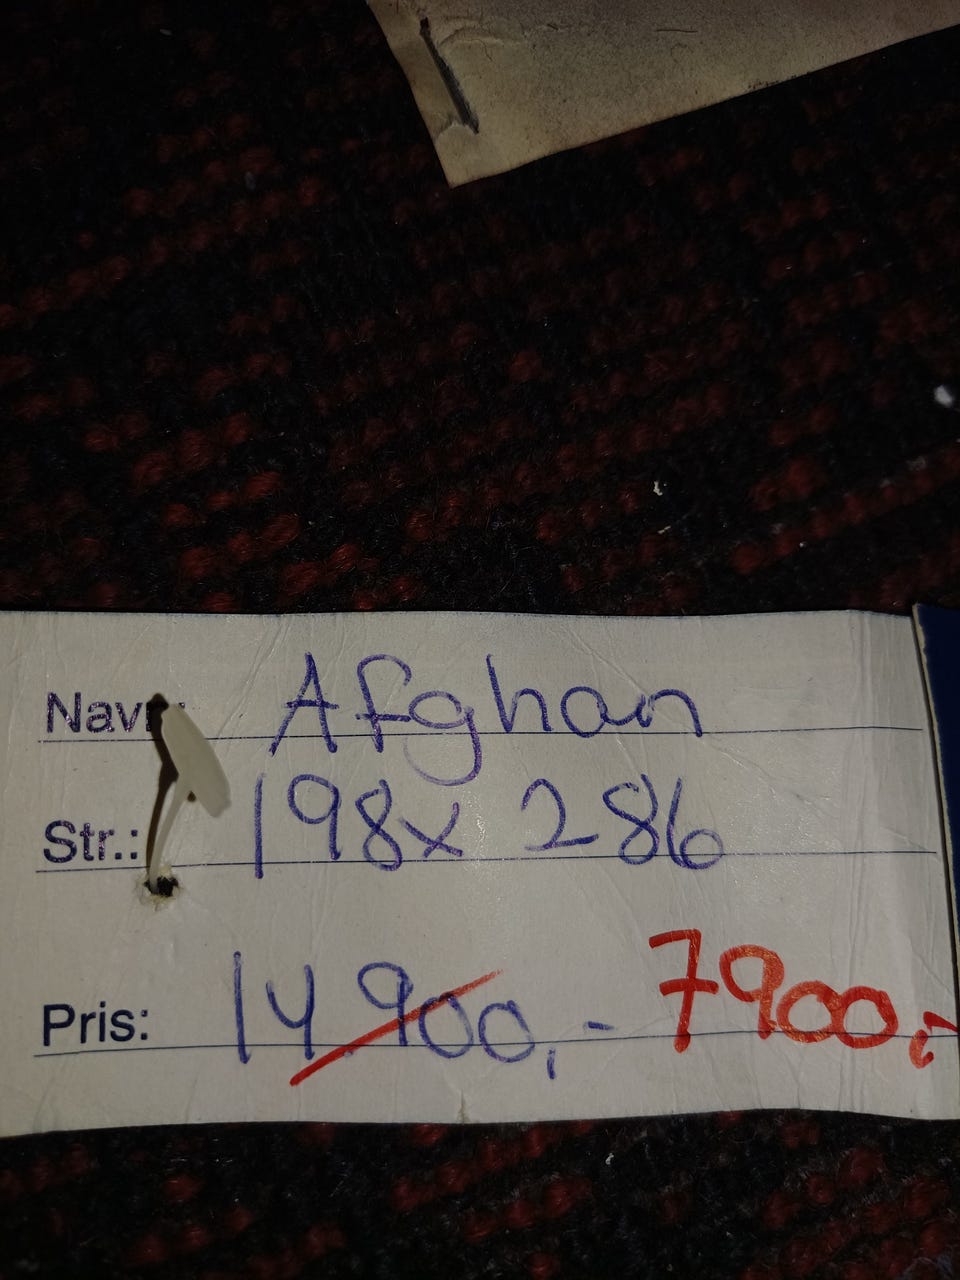 Navn: Afghan
Str.: 198x 286
Pris: 14.900,- 7900,-